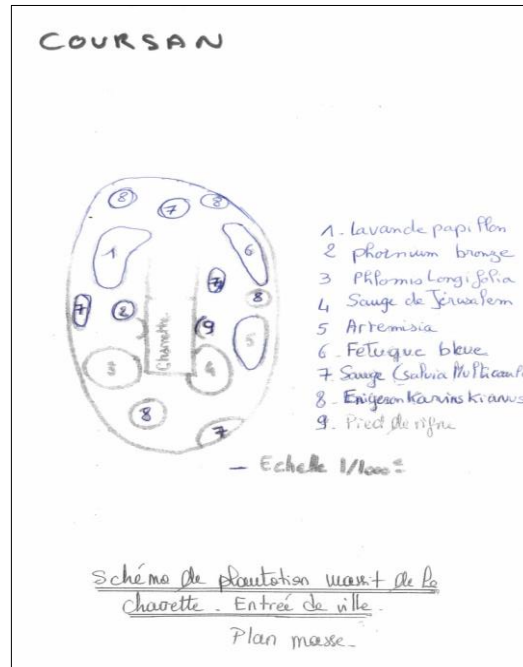 COURSAN
8
7
8
1
6
7
8
7
2
9
5
3
8
7
Charette
1. Lavande papillon
2 phormium bronze
3 Phlomis Longifolia
4 Sauge de Jérusalem
5 Artemisia
6 - Fetuque bleue
7. Sauge (salvia
8. Erigeron Karvinskianus
9. Pied de vigne
- Echelle 1/1000e
Schéma de plantation massif de la
charette. Entrée de ville.
Plan masse.